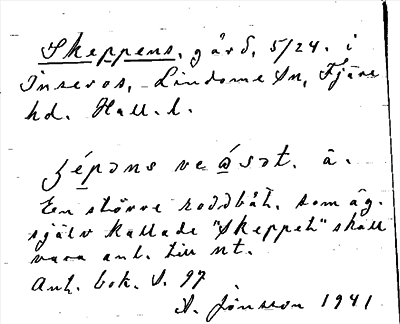 Skeppens, gård, 5/24. i
Inseros, Lindome sn, Fjäre
hd. Hall. l.
ʃépəns ve ásət. å.
En större roddbåt, som äg.
själv kallade "Skeppet" skall
vara ant. till nt.
Ant. bok. S. 97
A. Jönsson 1941